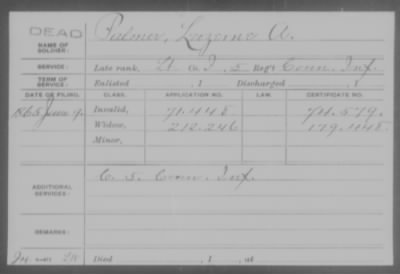 DEAD
NAME OF SOLDIER: Palmer, Luzerne A.
SERVICE: Late rank, Lt Co. I, 5 Reg't Conn. Inf.
TERM OF SERVICE: Enlisted , 1 Discharged , 1
DATE OF FILING. CLASS. APPLICATION NO. LAW. CERTIFICATE NO.
1865 June 9. Invalid, 71.448 74.579.
Widow, 212.246 179.448.
Minor,
ADDITIONAL SERVICES: C. 5. Conn. Inf.
REMARKS:
Died , 1 , at